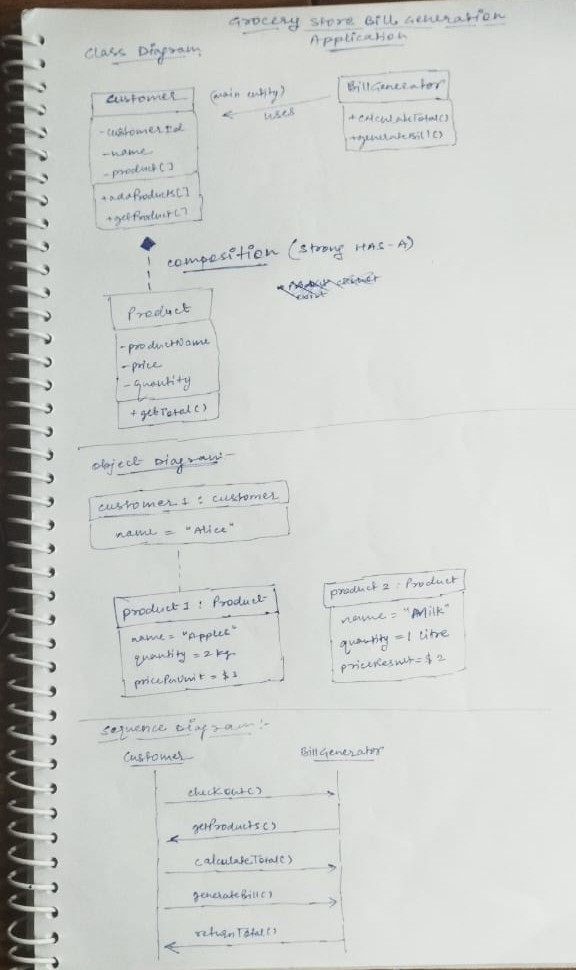 Grocery Store Bill Generation
Application
Class Diagram
Customer
- customerId
- name
- product[]
+ addProducts[]
+ getProduct[]
(main entity)
uses
BillGenerator
+ calculateTotal()
+ generateBill()
composition (Strong HAS-A)
Product
- productName
- price
- quantity
+ getTotal()
Object Diagram:-
customer1 : customer
name = "Alice"
product1 : Product
name = "Apples"
quantity = 2 kg
pricePerUnit = $3
product2 : Product
name = "Milk"
quantity = 1 litre
= $2
Sequence Diagram:-
Customer
BillGenerator
checkout()
getProducts()
calculateTotal()
generateBill()
returnTotal()